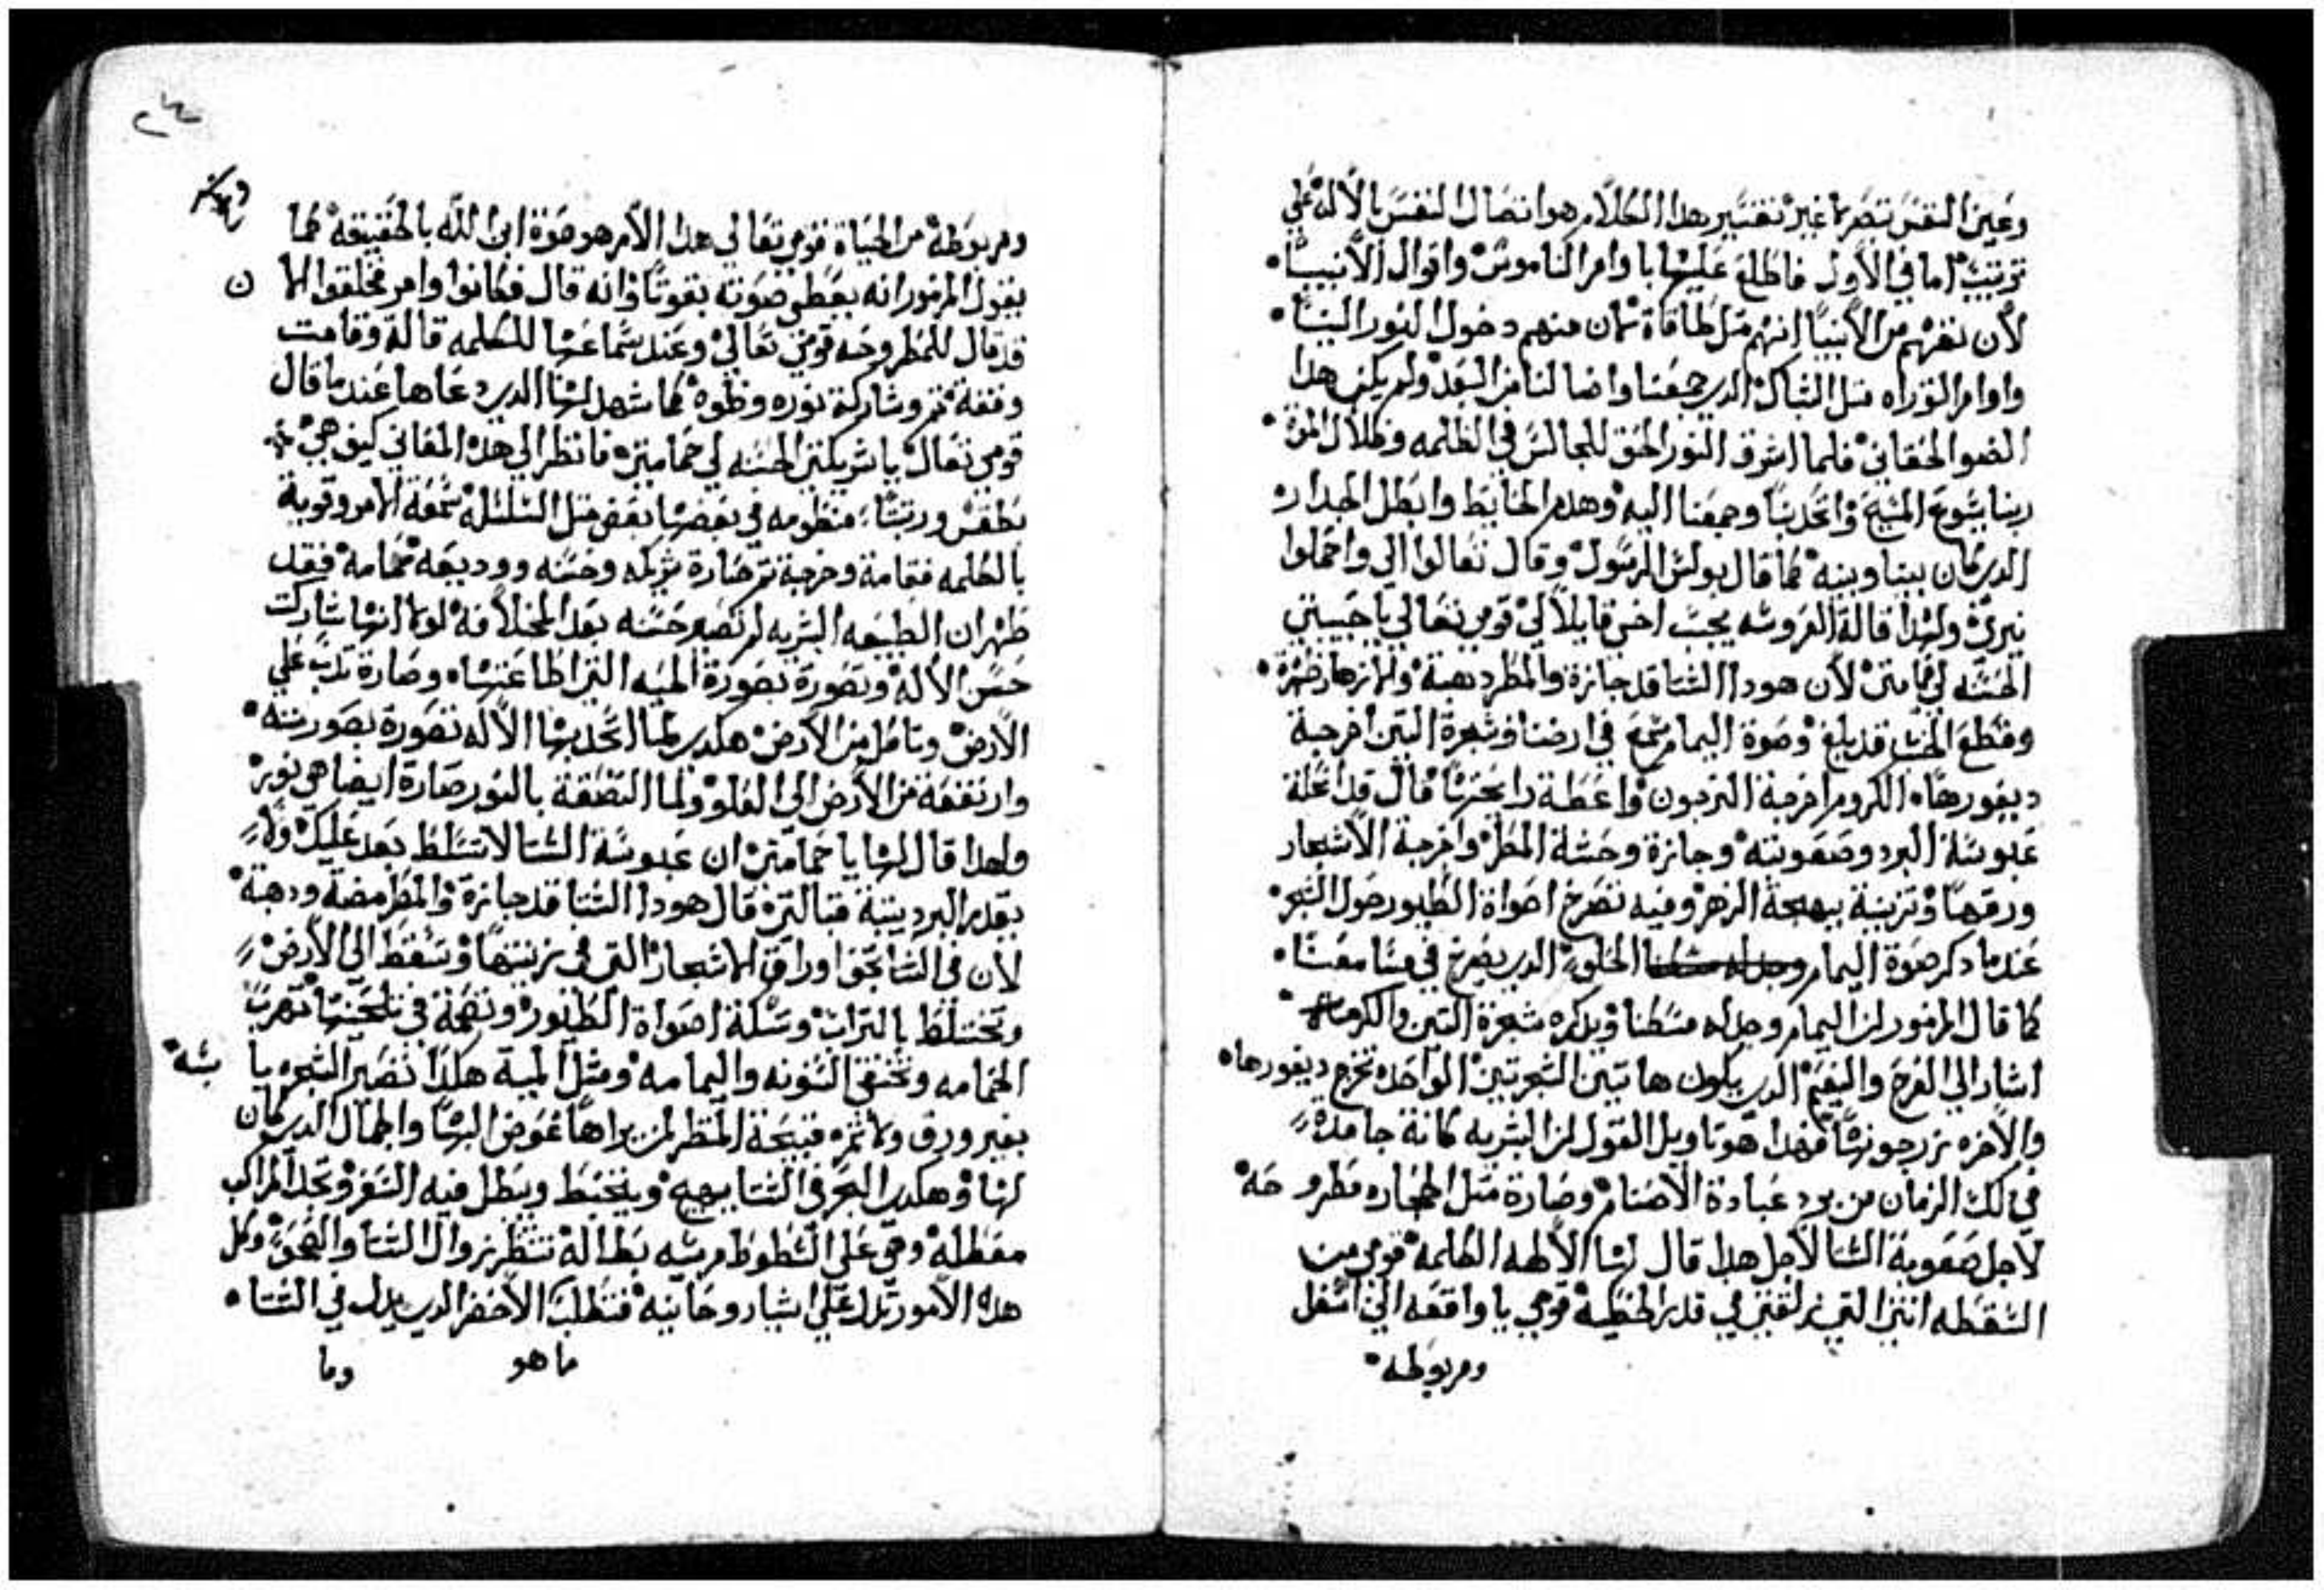 وعين النفس تصرما غير تفسير هدا الكلام هو اتصال النفس بالاله علي
ترتيب اما في الاول فاطلع عليها باوامر الناموس واقوال الانبيا
لان نفهم من الانبيا انهم متل طاقاة كان منهم دخول النور الينا
واوامر التوراه متل الشباك الدي جمعنا واضا لنا من البعد ولم يكن هدا
الضو الحقاني فلما اشرق النور الحق للجالس في الظلمه وظلال الموة
ربنا يشوع المسيح واتحد بنا وجمعنا اليه وهدم الحايط وابطل الجدار
الدي كان بيننا وبينه كما قال بولس الرسول وقال تعالوا الي واحملوا
نيري ولهدا قالة العروسه يجيب اخي قايلا لي قومي تعالي يا حبيبتي
الحسنه لي حمامتي لان هودا الشتا قد جازة والمطر دهبة والازهار ظهرة
وقطع الخشب قد بلغ وصوة اليمام سمع في ارضنا وشجرة التين اخرجة
ديفورها الكروم اخرجة الزرجون واعطة رايحتها قال قد انحلة
عبوسة البرد وصعوبته وجازة وحشة المطر واخرجة الاشجار
ورقها وتزينة ببهجة الزهر وفيه تصرخ اصواة الطيور حول الشجر
عندما دكر صوة اليمام الحلو الدي يصرخ في مسامعنا
كما قال المزمور لان اليمام وجد له مسكنا وبدكره شجرة التين والكرمه
اشار الي الفرح والنعيم الدي يكون هاتين الشجرتين الواحده تخرج ديفورها
والاخره زرجونها فهدا هو تاويل القول لان البشريه كانة جامده
في دلك الزمان من برد عبادة الاصنام وصارة متل الحجاره مطروحه
لاجل صعوبة الشتا لاجل هدا قال لها الاله الكلمه قومي من
السقطه انتي التي زلقتي في قدر الخطيه قومي يا واقعه الي اسفل
ومربوطه
٢٤
ومربوطه من الحياة قومي تعالي هدا الامر هو صوة ابن الله بالحقيقه كما
يقول المزمور انه يعطي صوته بقوتا وانه قال فكانوا وامر فخلقوا الان
قد قال للمطروحه قومي تعالي وعند سماعها للكلمه قالة وقامت
وقفة تم وشاركة نوره وخطوه كما شهد لها الدي دعاها عند ما قال
قومي تعال يا شريكتي الحسنه لي حمامتي فانظر الي هده المعاني كيف هي
بطقس ورتبتا منظومه في بعضها بعض متل السلسله سمعة الامر وقوية
بالكلمه فقامة وخرجة تم صارة شريكه وحسنه ووديعه حمامه فقد
ظهر ان الطبيعه البشريه لم تصير حسنه بعد المخالافه لولا انها شاركت
حسن الاله وتصورة بصورة الميه التي اطاعتها وصارة تدب علي
الارض وتاكل من الارض هكدي لما اتحد بها الاله تصورة بصورته
وارتفعة من الارض الي العلو ولما التصقة بالنور صارة ايضا هي نور
ولهدا قال لها يا حمامتي ان عبوسة الشتا لا تسلط بعد عليك ولا
بقدير البرد يتبة قبالتي قال هودا الشتا قد جازة والمطر مضة ودهبة
لان في الشتا تجف اوراق الاشجار التي في زينتها وتسقط الي الارض
وتختلط بالتراب وسكتة اصواة الطيور ونغمة في تلحينها تهرب
الحمامه وتختفي السنونه واليمامه ومتل الميه هكدا تصير الشجره يابسه
بغير ورق ولا تمره قبيحة المنظر لمن يراها عوض البها والجمال الدي كان
لها وهكدي البحر في الشتا يهيج ويتخبط ويبطل فيه السفر وتجد المراكب
معطله وهي علي الشطوط مرسيه بطاله تنتظر زوال الشتا والصحو وكل
هده الامور تدل علي اشيا روحانيه فتطلب الاخضر الدي يدبل في الشتا
ما هو وما